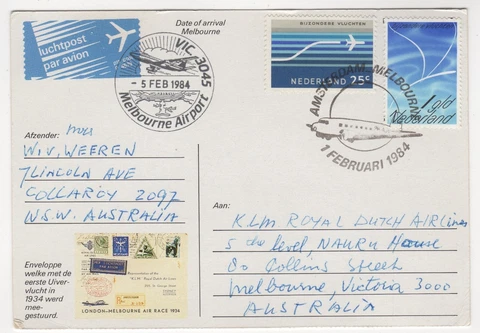 luchtpost
par avion
Date of arrival
Melbourne
VIC. 3045
- 5 FEB 1984
Melbourne Airport
BIJZONDERE VLUCHTEN
NEDERLAND 25c
1 gld
Nederland
AMSTERDAM-MELBOURNE
1 FEBRUARI 1984
Afzender:
Mrs
W.V. WEEREN
7 LINCOLN AVE
COLLAROY 2097
N.S.W. AUSTRALIA
Aan:
KLM ROYAL DUTCH AIRLINES
5 the level, NAURU House
80 Collins Street
Melbourne, Victoria 3000
AUSTRALIA
Enveloppe
welke met de
eerste Uiver-
vlucht in
1934 werd
mee-
gestuurd.
LONDON-MELBOURNE AIR RACE 1934